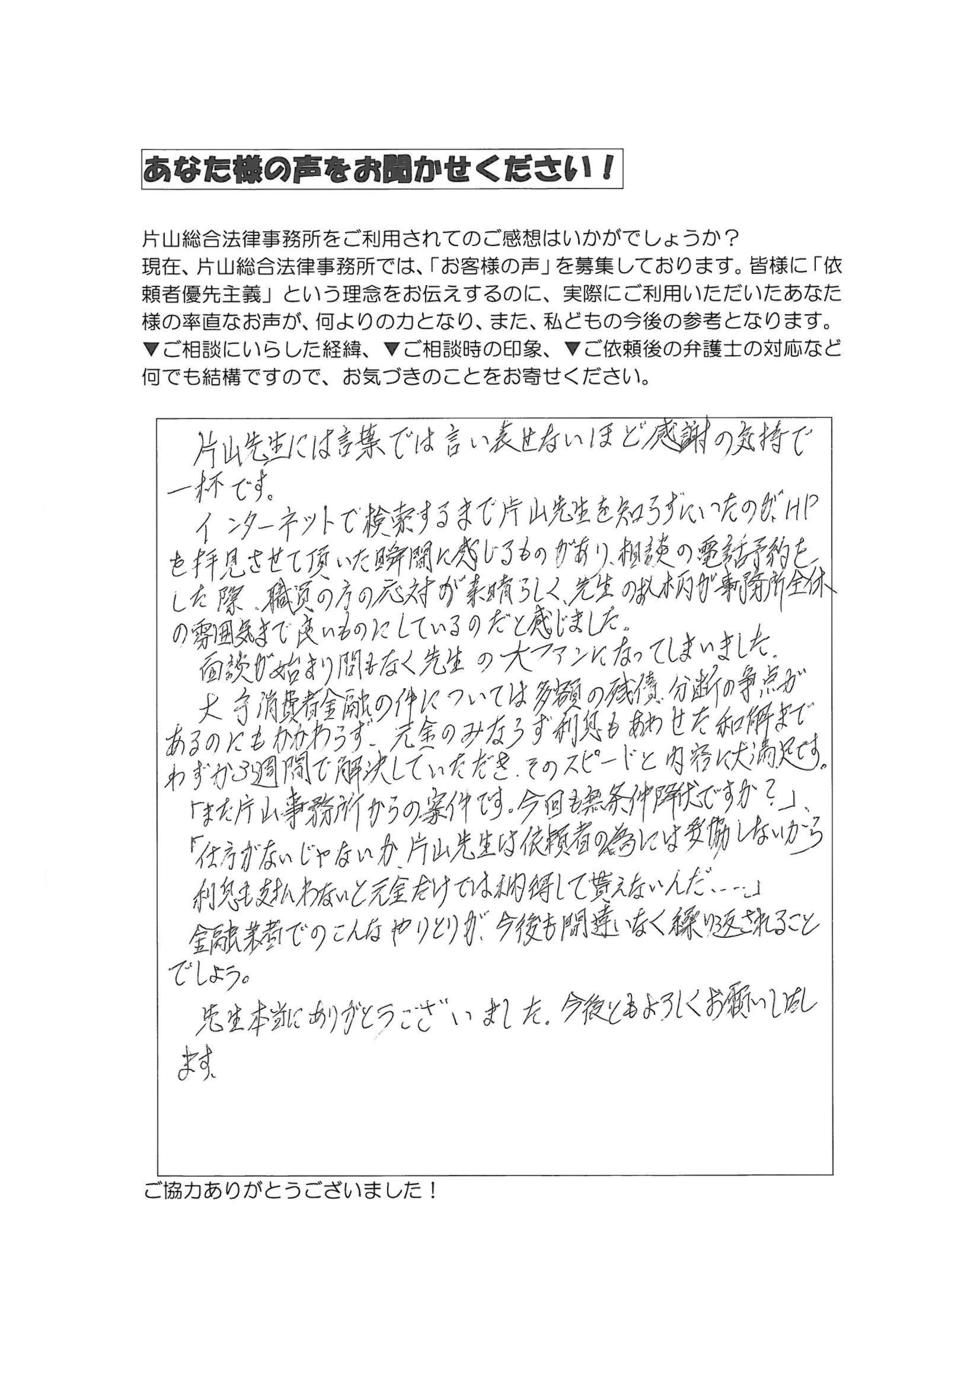 あなた様の声をお聞かせください！
片山総合法律事務所をご利用されてのご感想はいかがでしょうか？
現在、片山総合法律事務所では、「お客様の声」を募集しております。皆様に「依
頼者優先主義」という理念をお伝えするのに、実際にご利用いただいたあなた
様の率直なお声が、何よりの力となり、また、私どもの今後の参考となります。
▼ご相談にいらした経緯、▼ご相談時の印象、▼ご依頼後の弁護士の対応など
何でも結構ですので、お気づきのことをお寄せください。
片山先生には言葉では言い表せないほど感謝の気持で
一杯です。
インターネットで検索するまで片山先生を知らずにいったのが、HP
を拝見させて頂いた瞬間に感じるものがあり、相談の電話予約を
した際、職員の方の応対が素晴らしく、先生のお人柄が事務所全体
の雰囲気まで良いものにしているのだと感じました。
面談が始まり間もなく先生の大ファンになってしまいました。
大手消費者金融の件については多額の残債、分断の争点が
あるのにもかかわらず、元金のみならず利息もあわせた和解まで
わずか3週間で解決していただき、そのスピードと内容に大満足です。
「また片山事務所からの案件です。今回も無条件降伏ですか？」、
「仕方がないじゃないか、片山先生は依頼者の為には妥協しないから
利息も支払わないと元金だけでは納得して貰えないんだ……」
金融業者でのこんなやりとりが、今後も間違いなく繰り返されること
でしょう。
先生本当にありがとうございました。今後ともよろしくお願いし致し
ます。
ご協力ありがとうございました！